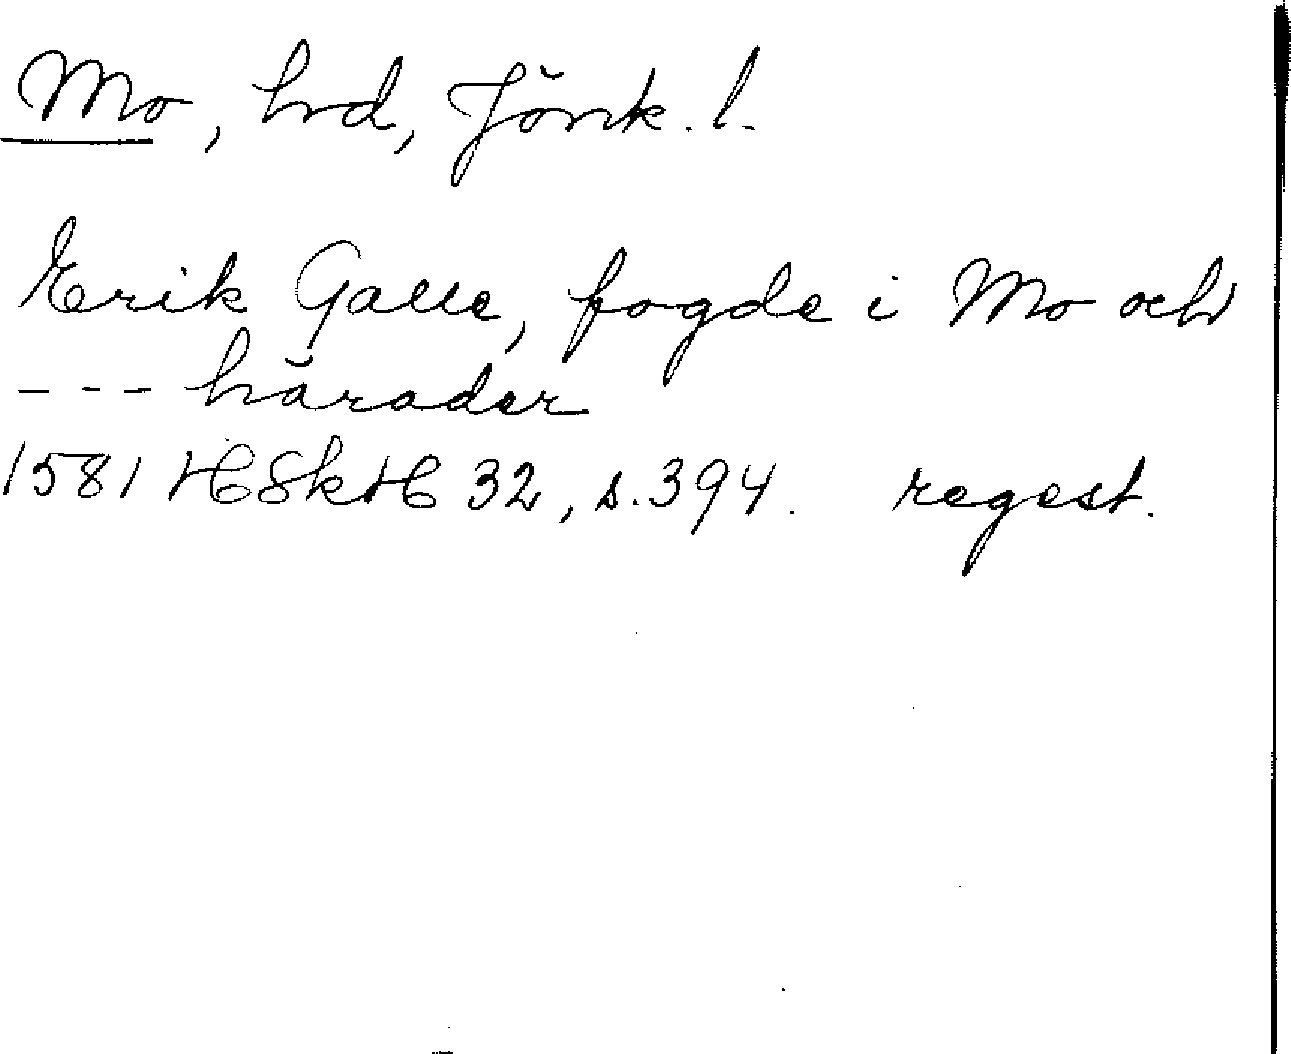 Mo, hd, Jönk. l.
Erik Galle, fogde i Mo och
- - - härader
1581 HSkH 32, s. 394. regest.